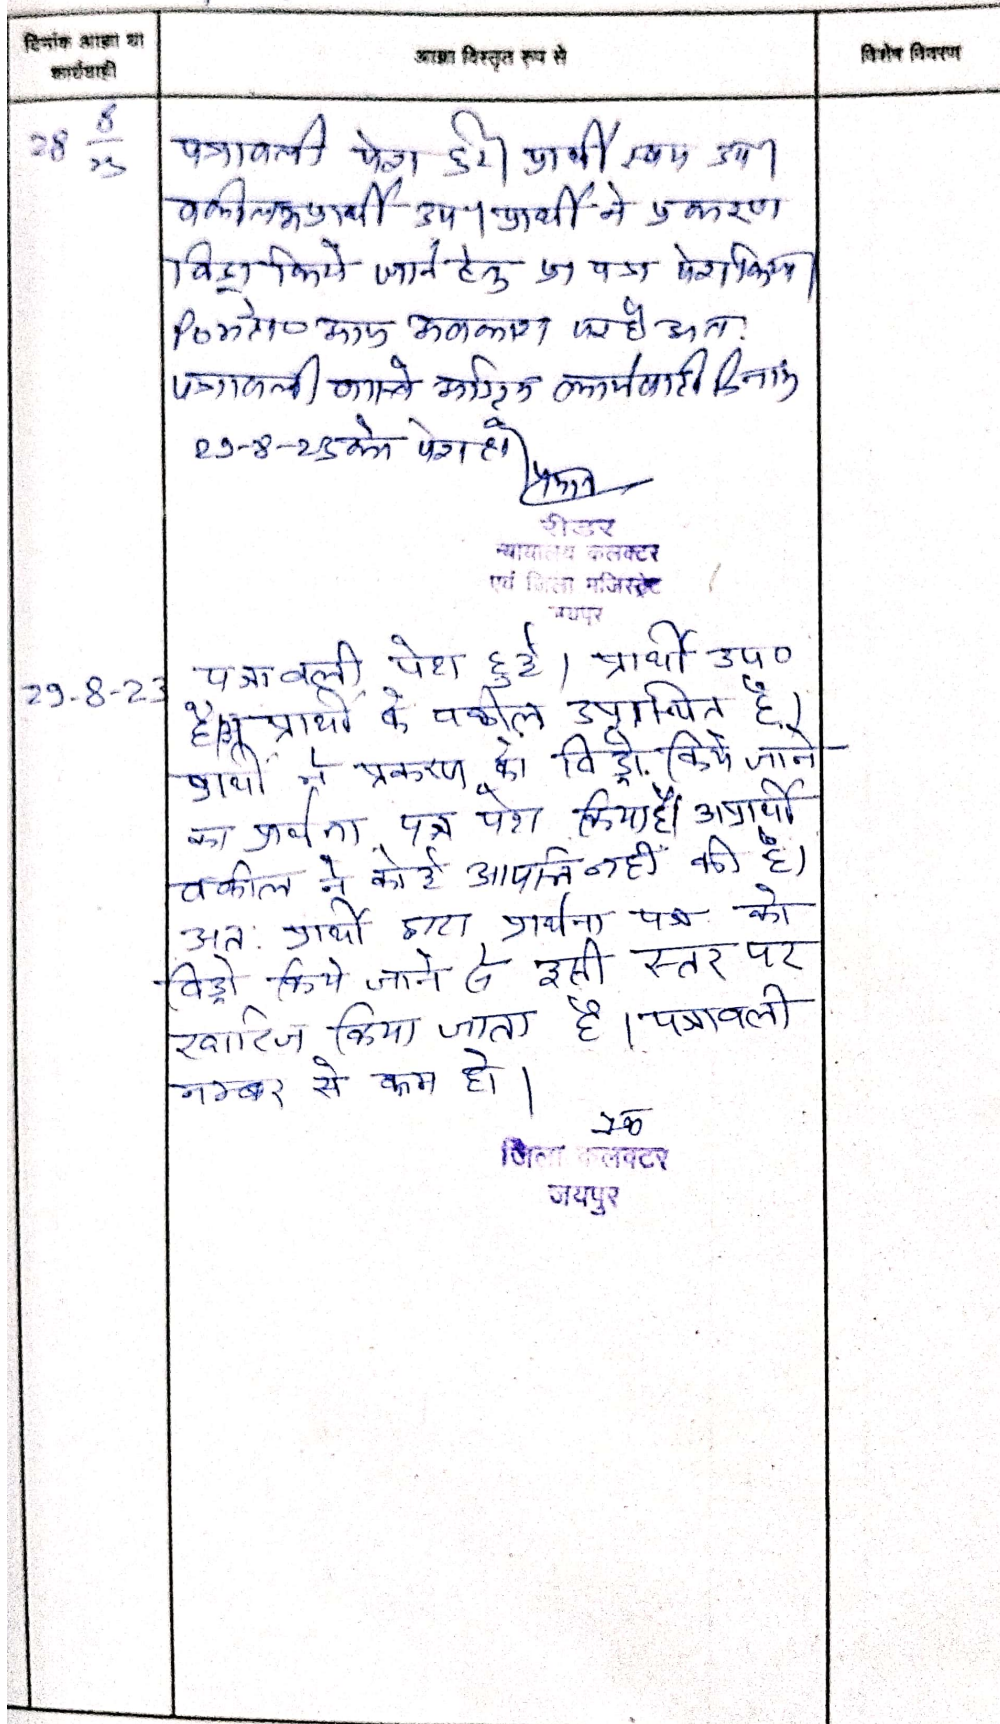 दिनांक आज्ञा या कार्यवाही
आज्ञा विस्तृत रूप से
विशेष विवरण
28 8/23
पत्रावली पेश हुई। प्रार्थी स्वयं उप।
वकील अप्रार्थी उप। प्रार्थी ने प्रकरण
विड्रा किये जाने हेतु प्रा पत्र पेश किया।
अवकाश पर है अतः
पत्रावली वास्ते अग्रिम कार्यवाही दिनांक
29-8-23 को पेश हो।
रीडर
न्यायालय कलक्टर
एवं जिला मजिस्ट्रेट
जयपुर
29-8-23
पत्रावली पेश हुई। प्रार्थी उप०
है। अप्रार्थी के वकील उपस्थित है।
प्रार्थी ने प्रकरण को विड्रो किये जाने
का प्रार्थना पत्र पेश किया है। अप्रार्थी
वकील ने कोई आपत्ति नहीं की है।
अतः प्रार्थी द्वारा प्रार्थना पत्र को
विड्रो किये जाने से इसी स्तर पर
खारिज किया जाता है। पत्रावली
नम्बर से कम हो।
जिला कलक्टर
जयपुर